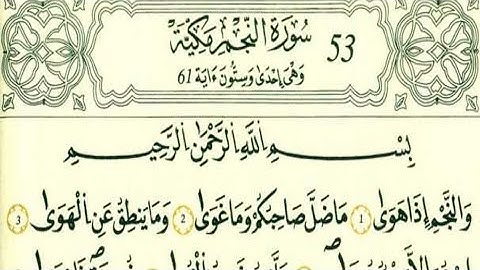 سُورَةُ النَّجْمِ مَكِّيَّة 53
وَهْىَ إِحْدَىٰ وَسِتُّونَ ءَايَة 61
بِسْمِ اللَّهِ الرَّحْمَٰنِ الرَّحِيمِ
وَالنَّجْمِ إِذَا هَوَىٰ 1 مَا ضَلَّ صَاحِبُكُمْ وَمَا غَوَىٰ 2 وَمَا يَنطِقُ عَنِ الْهَوَىٰ 3